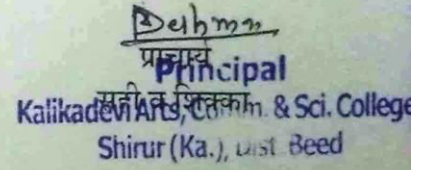 प्राचार्य
Principal
सही व शिक्का
Kalikadevi Arts, Comm. & Sci. College
Shirur (Ka.), Dist. Beed